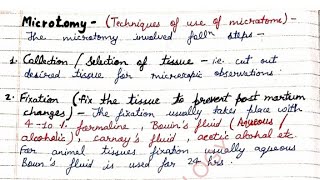 Microtomy - (Techniques of use of microtome) -
The microtomy involved follⁿ steps -
1. Collection / Selection of tissue - i.e. cut out
desired tissue for microscopic observations
2. Fixation (fix the tissue to prevent post mortum
changes) - The fixation usually takes place with
4-10% formaline, Bouin's fluid (Aqueous /
alcoholic), carnoy's fluid, acetic alcohol etc.
For animal tissues fixation usually aqueous
Bouin's fluid is used for 24 hrs.